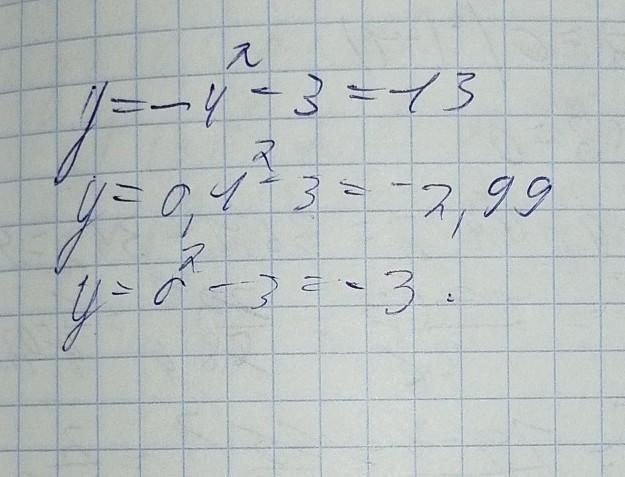 y=-4²-3=-13
y=0,1²-3=-2,99
y=0²-3=-3.